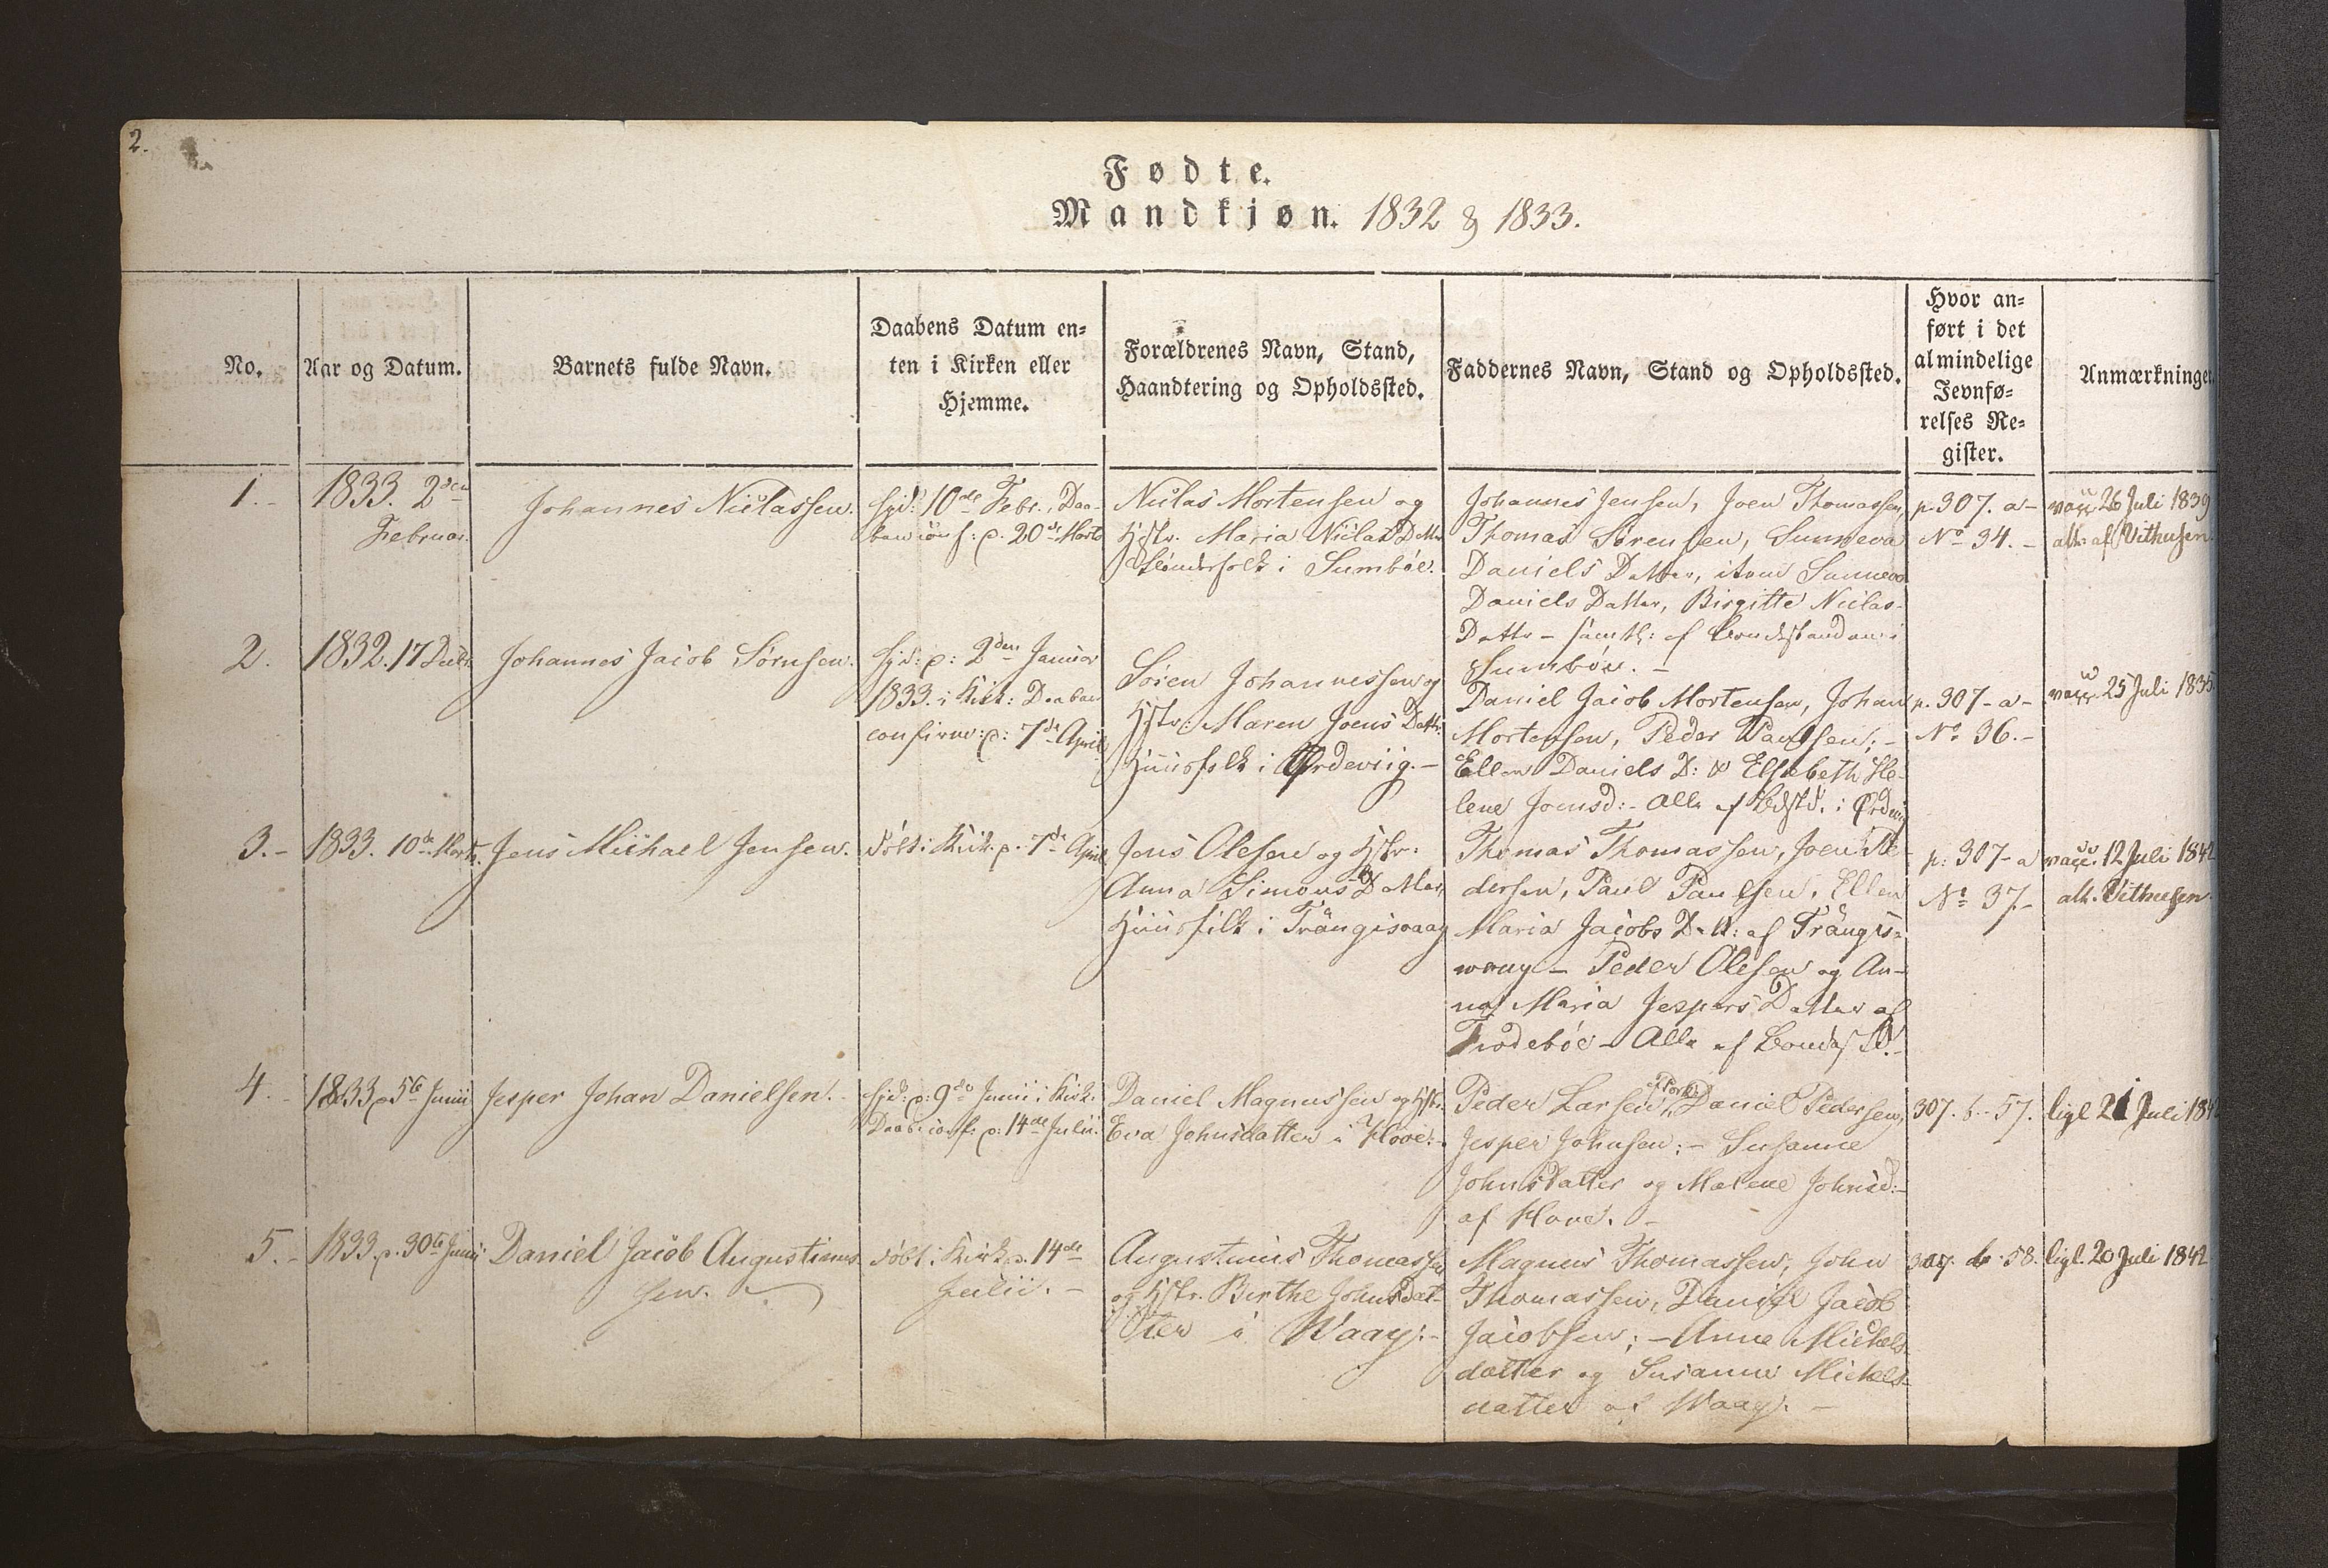 2.
Fødte.
Mandkjøn. 1832 & 1833.
No.
Aar og Datum.
Barnets fulde Navn.
Daabens Datum en-
ten i Kirken eller
Hjemme.
Forældrenes Navn, Stand,
Haandtering og Opholdssted.
Faddernes Navn, Stand og Opholdssted.
Hvor an-
ført i det
almindelige
Jevnfø-
relses Re-
gister.
Anmærkninger
1.-
1833. 2den
Februar.
Johannes Niclassen.
hjd: 10de Febr., Daa-
ben conf: p. 20de Marts
Niclas Mortensen og
Hstr. Maria Niclas Dattr
i Sumböe.
Johannes Jensen, Joen Thomassen,
Thomas Sörensen, Sunneva
Daniels Datter, item Sunneva
Daniels Datter, Birgitte Niclas-
Dattr - samtl: af Bondestanden i
Sumböe. -
p. 307. a-
No 34. -
vacc. 26 Juli 1839
att. af Vithusen
2.
1832. 17 Decbr.
Johannes Jacob Sörnsen.
hjd: p: 2den Januar
1833. i Kirk: Daaben
confirm: p: 7de April
Sören Johannessen og
Hstr: Maren Joens Dattr.
Huusfolk i Ørdeviig. -
Daniel Jacob Mortensen, Johan
Mortensen, Peder Paulsen; -
Ellen Daniels D: & Elsebeth He-
lene Joensd: - Alle af Bdstd. i Ørdviig
p. 307- a-
No 36.-
vacc. 25 Juli 1835
3.-
1833. 10de Marts.
Jens Michael Jensen.
döbt i Kirk. p. 7de April
Jens Olesen og Hstr.
Anna Simons Datter,
Huusfolk i Trangisvaag
Thomas Thomassen, Joen Pe-
dersen, Paul Paulsen, Ellen
Maria Jacobs Datt: af Trangis-
waag - Peder Olesen og An-
na Maria Jespers Datter af
Frodeböe - Alle af Bondest.-
p: 307- a
No 37.-
vacc. 12 Juli 1842
att. Vithusen
4. -
1833 p 5te Junii
Jesper Johan Danielsen. -
hjd: p: 9de Junii i Kirk.
Daab. conf: p: 14de Julii.
Daniel Magnussen og Hstr.
Eva Johnsdatter i Hove.-
Peder Larsen af Porkr, Daniel Pedersen,
Jesper Johnsen; - Susanne
Johnsdatter og Malene Johnsd:-
af Hove. -
307. b.- 57.
ligl 21 Juli 1842
5. -
1833. p. 30te Junii
Daniel Jacob Augustinus-
sen.
döbt i Kirk. p. 14de
Julii. -
Augustinus Thomassen
og Hstr. Birthe Johnsdat-
ter i Waag. -
Magnus Thomassen, John
Thomassen, Daniel Jacob
Jacobsen; - Anne Michels-
datter og Susanne Michels-
datter af Waag. -
307. b. 58.
ligl. 20 Juli 1842